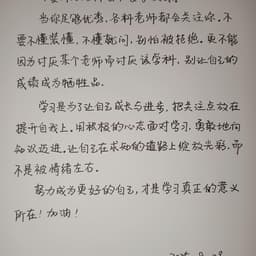 当你足够优秀，各科老师都会关注你。不
要不懂装懂，不懂就问，别怕被拒绝。更不能
因为讨厌某个老师而讨厌该学科，别让自己的
成绩成为牺牲品。
学习是为了让自己成长与进步，把关注点放在
提升自我上。用积极的心态面对学习，勇敢地向
知识迈进。让自己在求知的道路上绽放光彩，而
不是被情绪左右。
努力成为更好的自己，才是学习真正的意义
所在！加油！